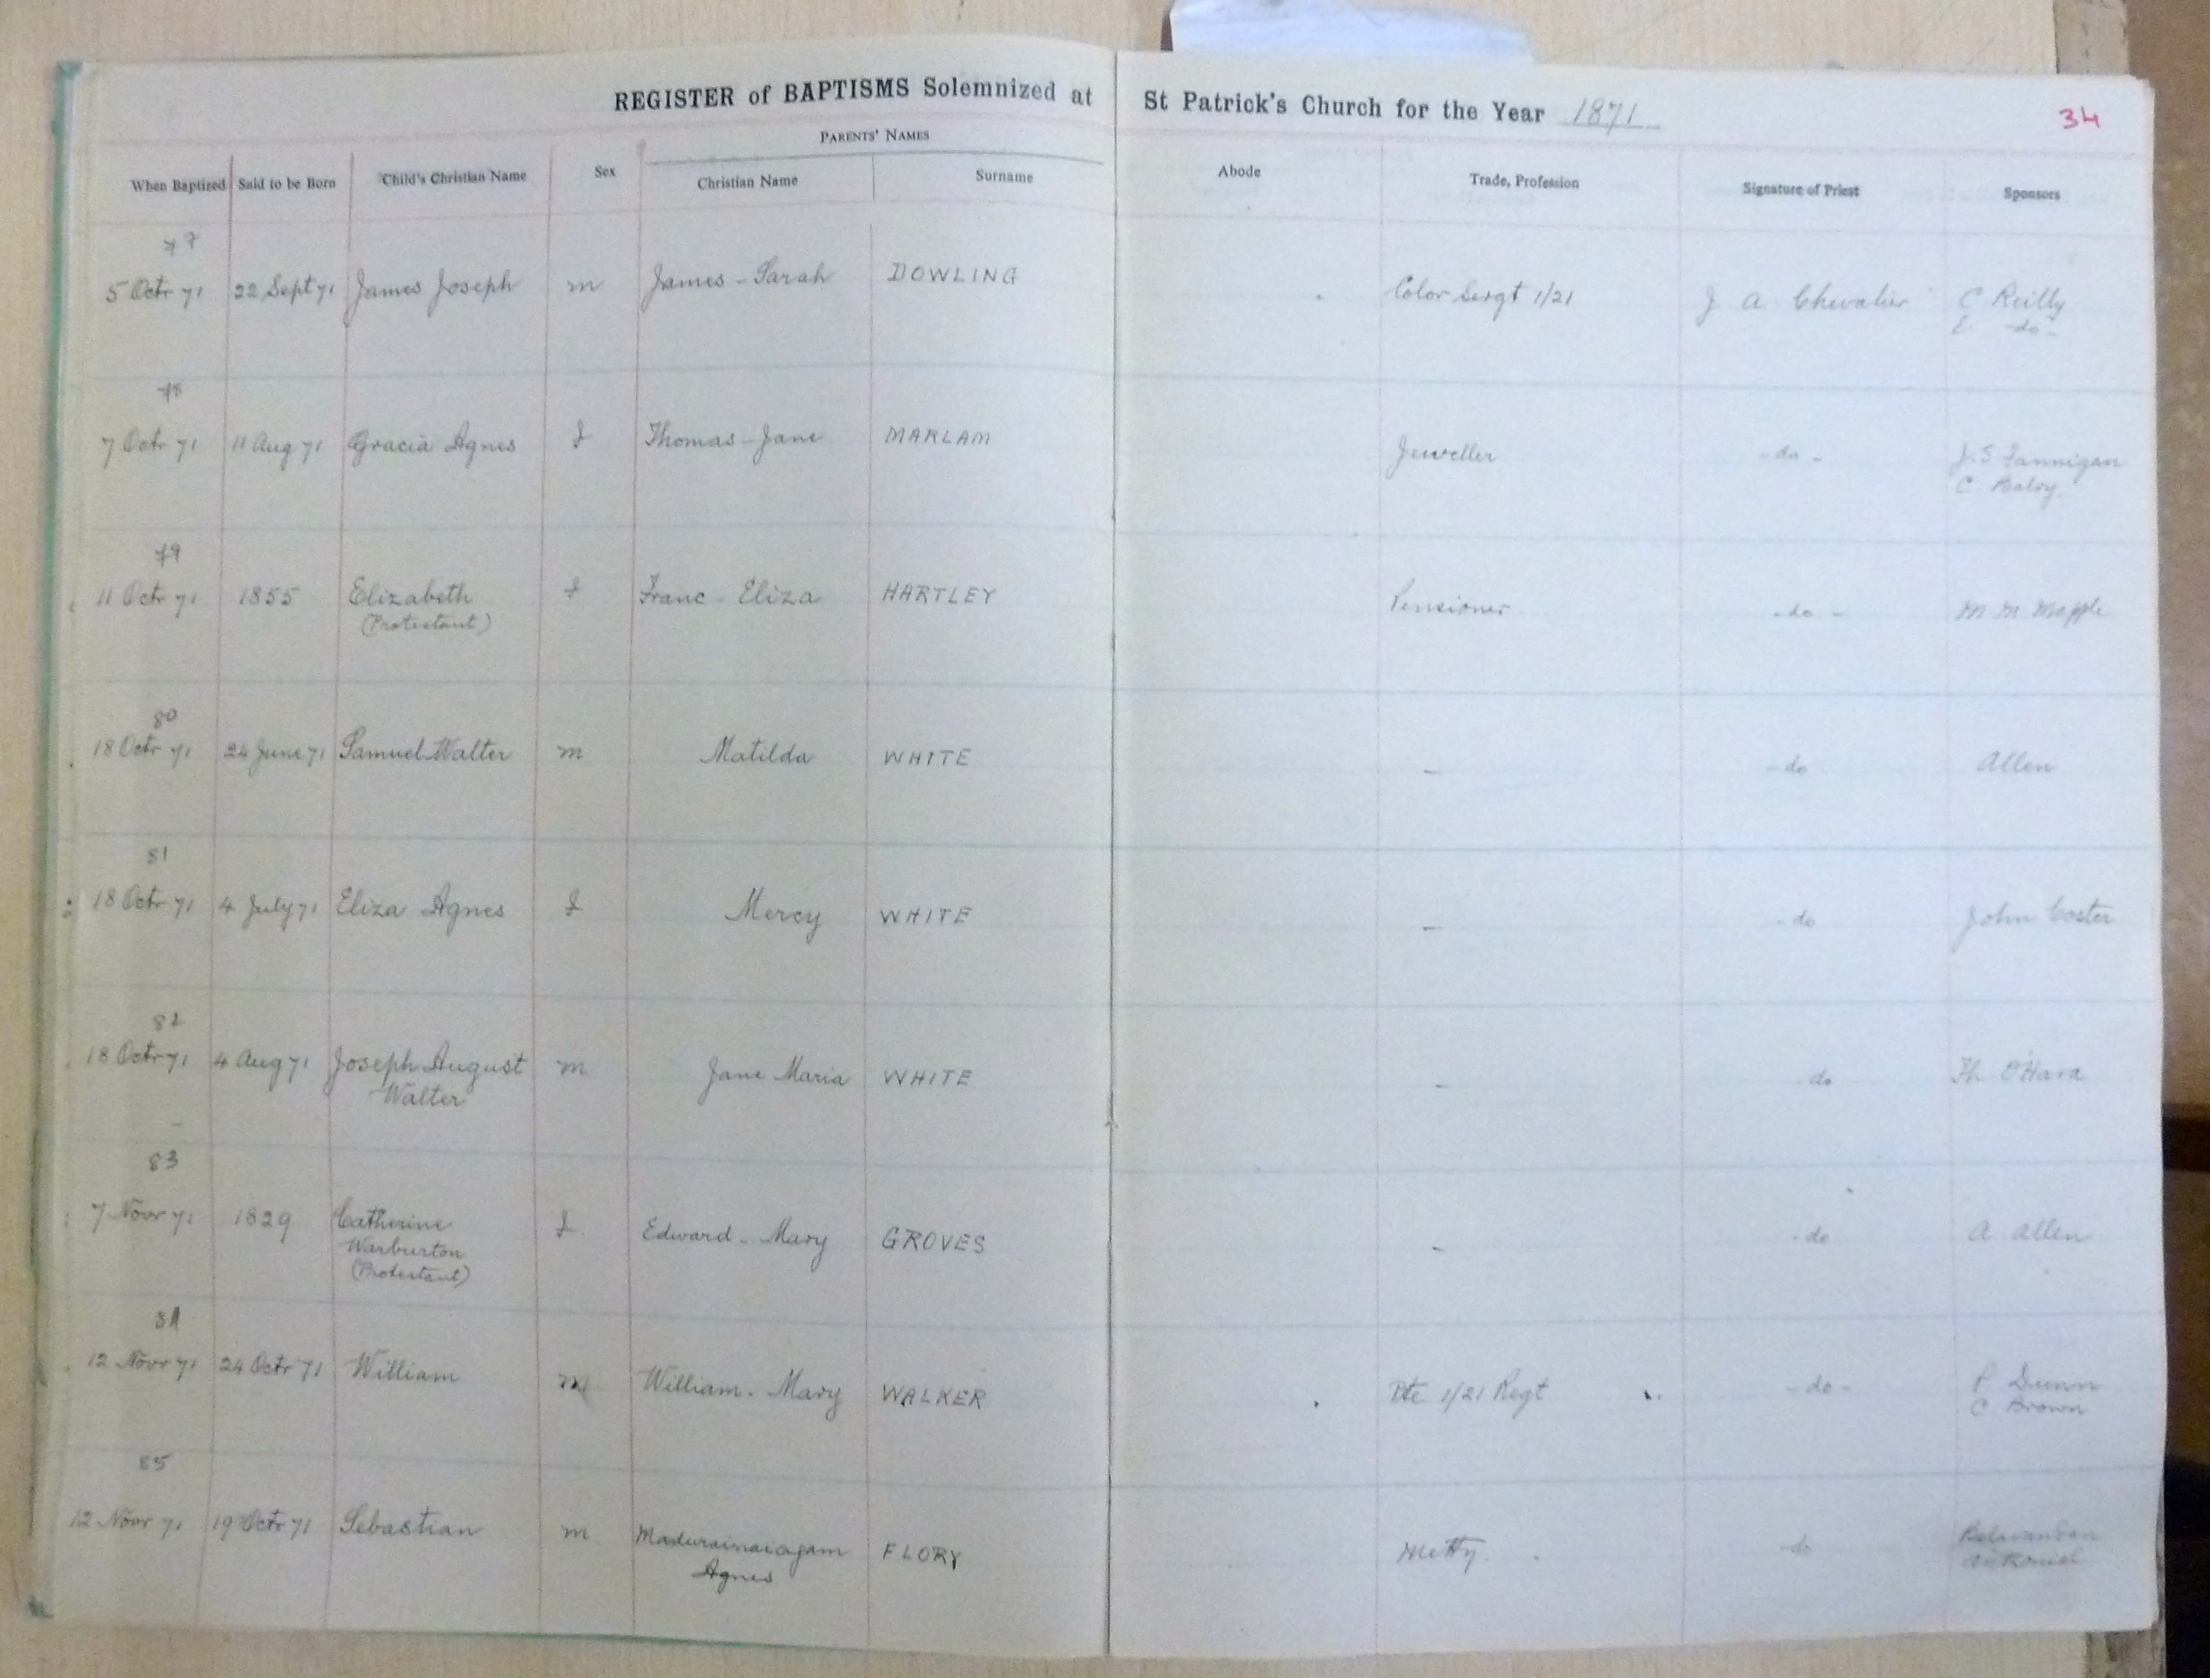 REGISTER of BAPTISMS Solemnized at St Patrick's Church for the Year 1871
34
PARENTS' NAMES
When Baptized Said to be Born Child's Christian Name Sex Christian Name Surname Abode Trade, Profession Signature of Priest Sponsors
77
5 Octr 71 22 Sept 71 James Joseph m James - Sarah DOWLING Color Sergt 1/21 J A Chevalier C Reilly
E. -do-
78
7 Octr 71 11 Aug 71 Gracia Agnes f Thomas - Jane MARLAM Jeweller -do- J. S Fannigan
C.
79
11 Octr 71 1855 Elizabeth f Franc - Eliza HARTLEY Pensioner -do- M M Mapple
(Protestant)
80
18 Octr 71 24 June 71 Samuel Walter m Matilda WHITE - -do Allen
81
18 Octr 71 4 July 71 Eliza Agnes f Mercy WHITE - -do John Coster
82
18 Octr 71 4 Aug 71 Joseph August m Jane Maria WHITE - do Th O'Hara
Walter
83
7 Novr 71 1829 Catherine f Edward - Mary GROVES - -do A Allen
Warburton
(Protestant)
84
12 Novr 71 24 Octr 71 William m William - Mary WALKER Pte 1/21 Regt -do- P Dunn
C Brown
85
12 Novr 71 19 Octr 71 Sebastian m Madurainaiagam FLORY Metty. -do
Agnes